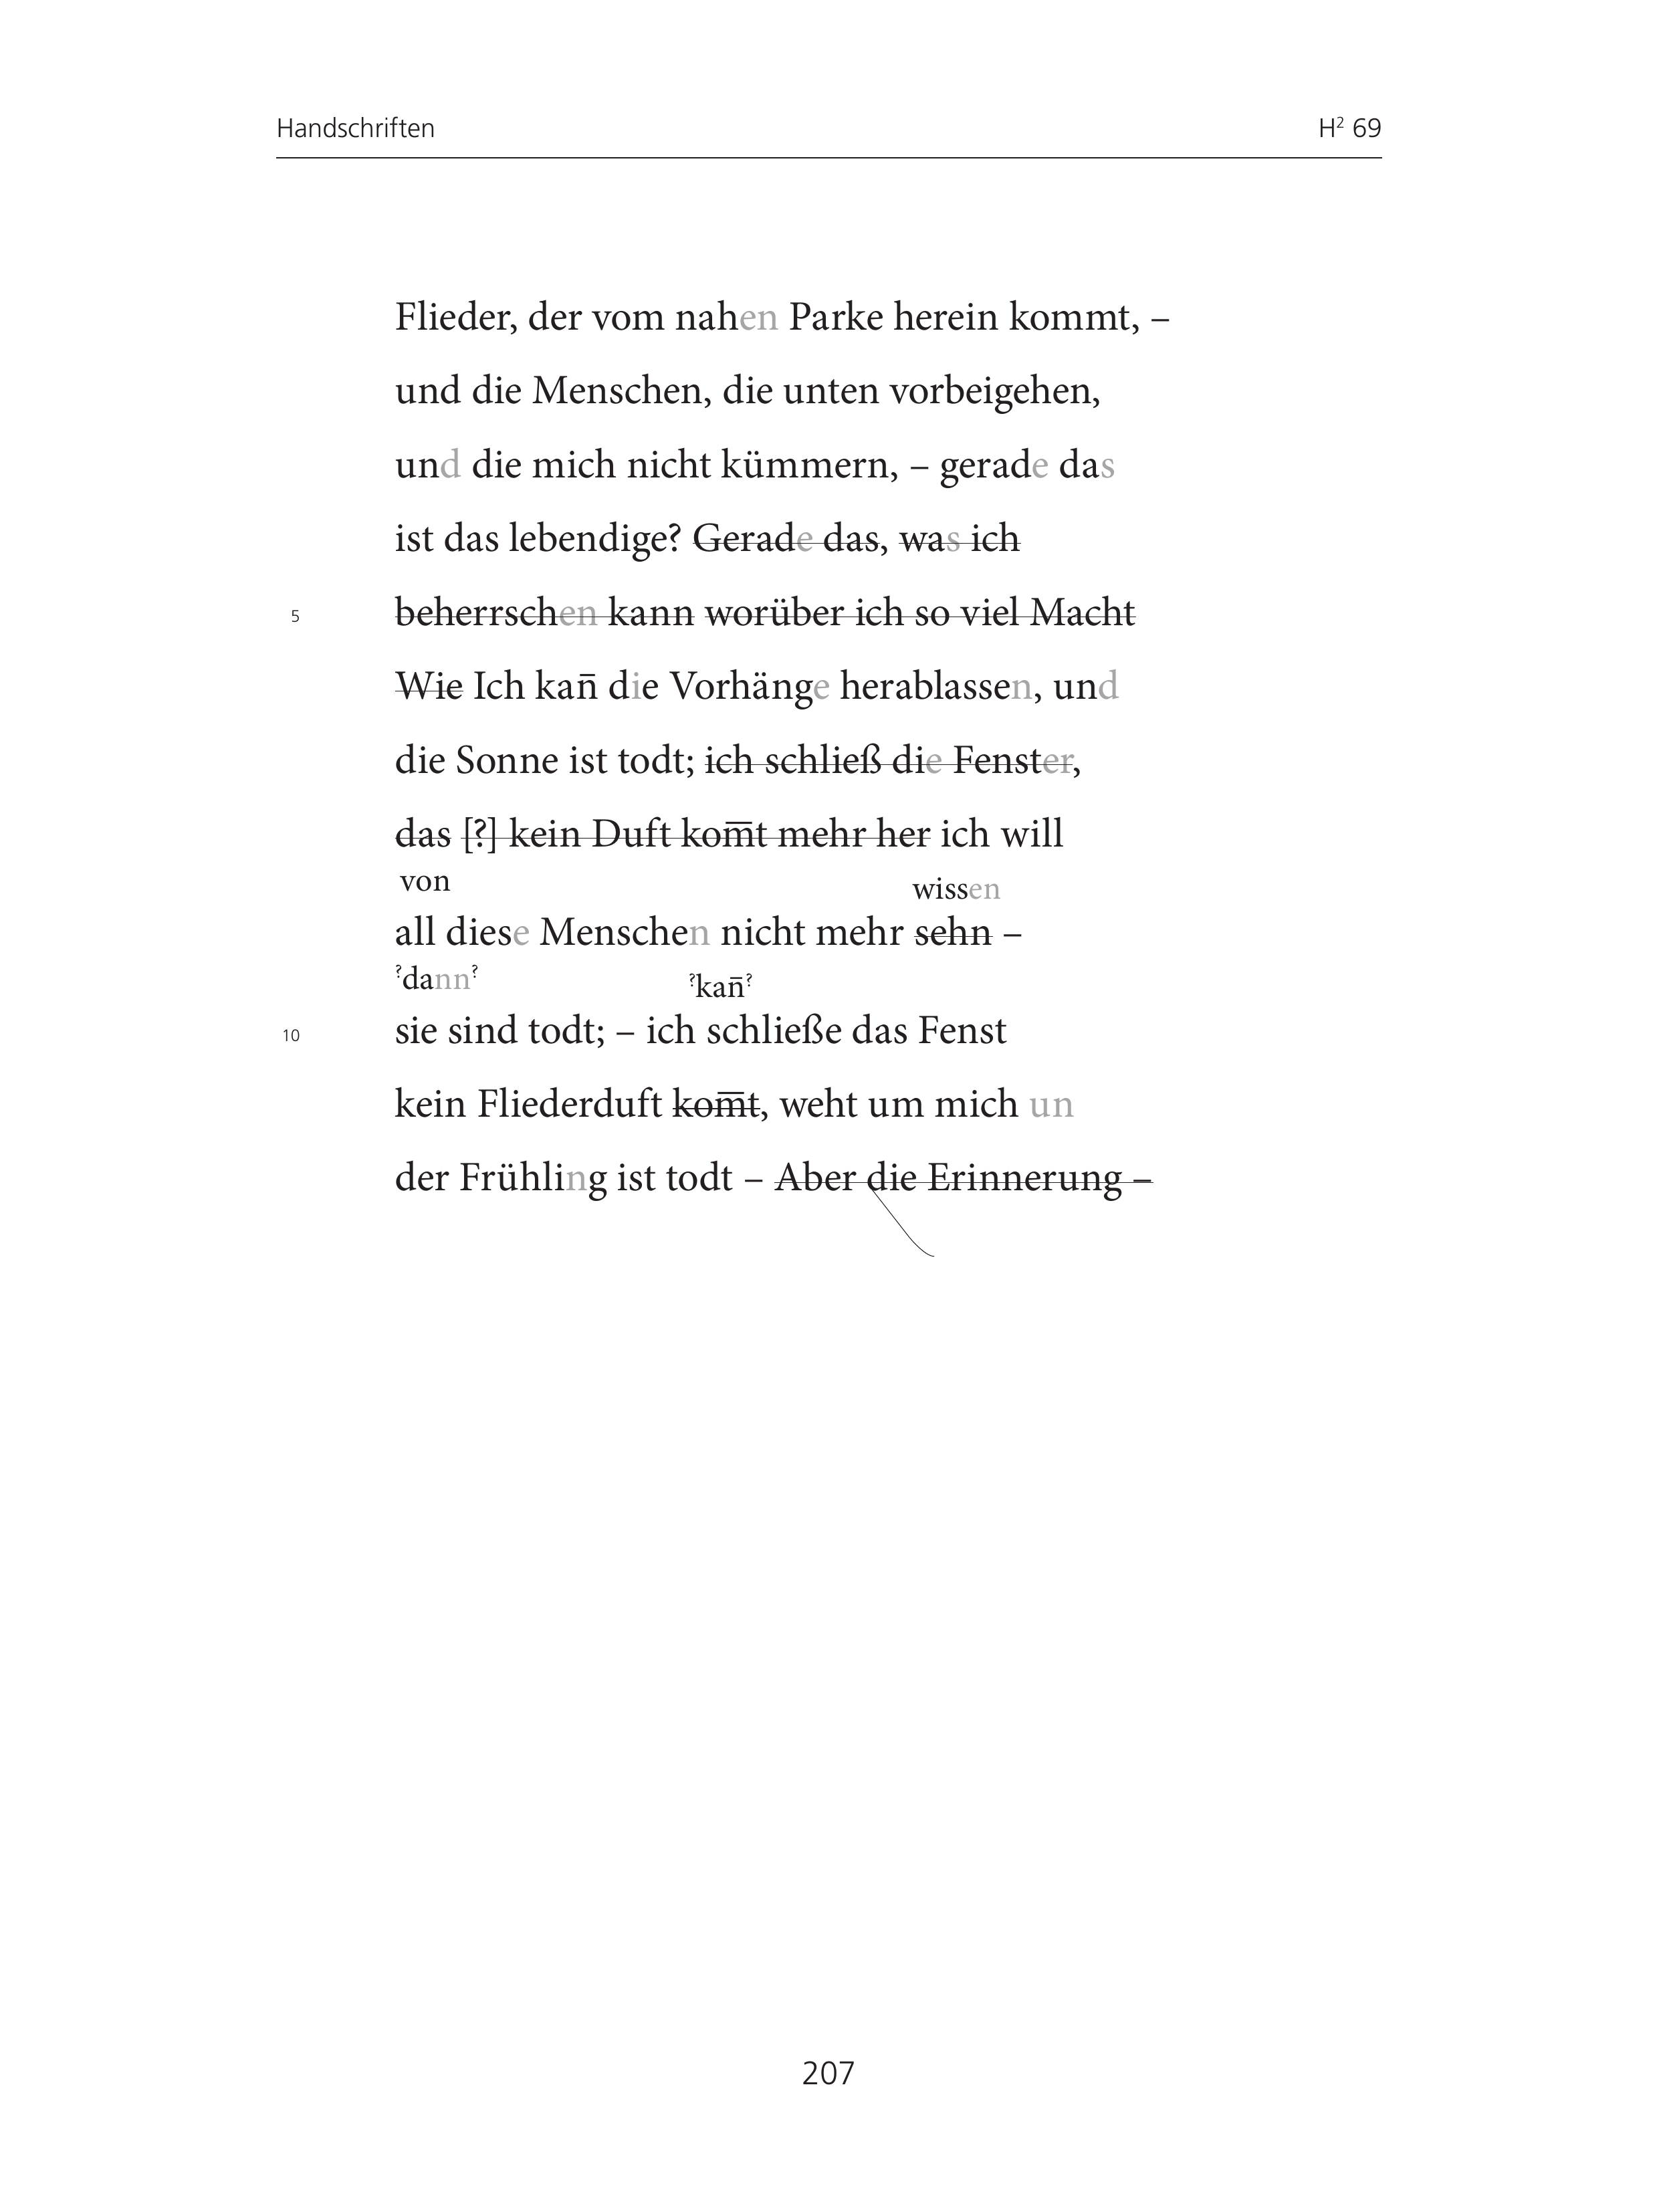 Handschriften H² 69
Flieder, der vom nahen Parke herein kommt, –
und die Menschen, die unten vorbeigehen,
und die mich nicht kümmern, – gerade das
ist das lebendige? Gerade das, was ich
5 beherrschen kann worüber ich so viel Macht
Wie Ich kan̄ die Vorhänge herablassen, und
die Sonne ist todt; ich schließ die Fenster,
das [?] kein Duft kom̅t mehr her ich will
von wissen
all diese Menschen nicht mehr sehn –
?dann? ?kan̄?
10 sie sind todt; – ich schließe das Fenst
kein Fliederduft kom̅t, weht um mich un
der Frühling ist todt – Aber die Erinnerung –
207